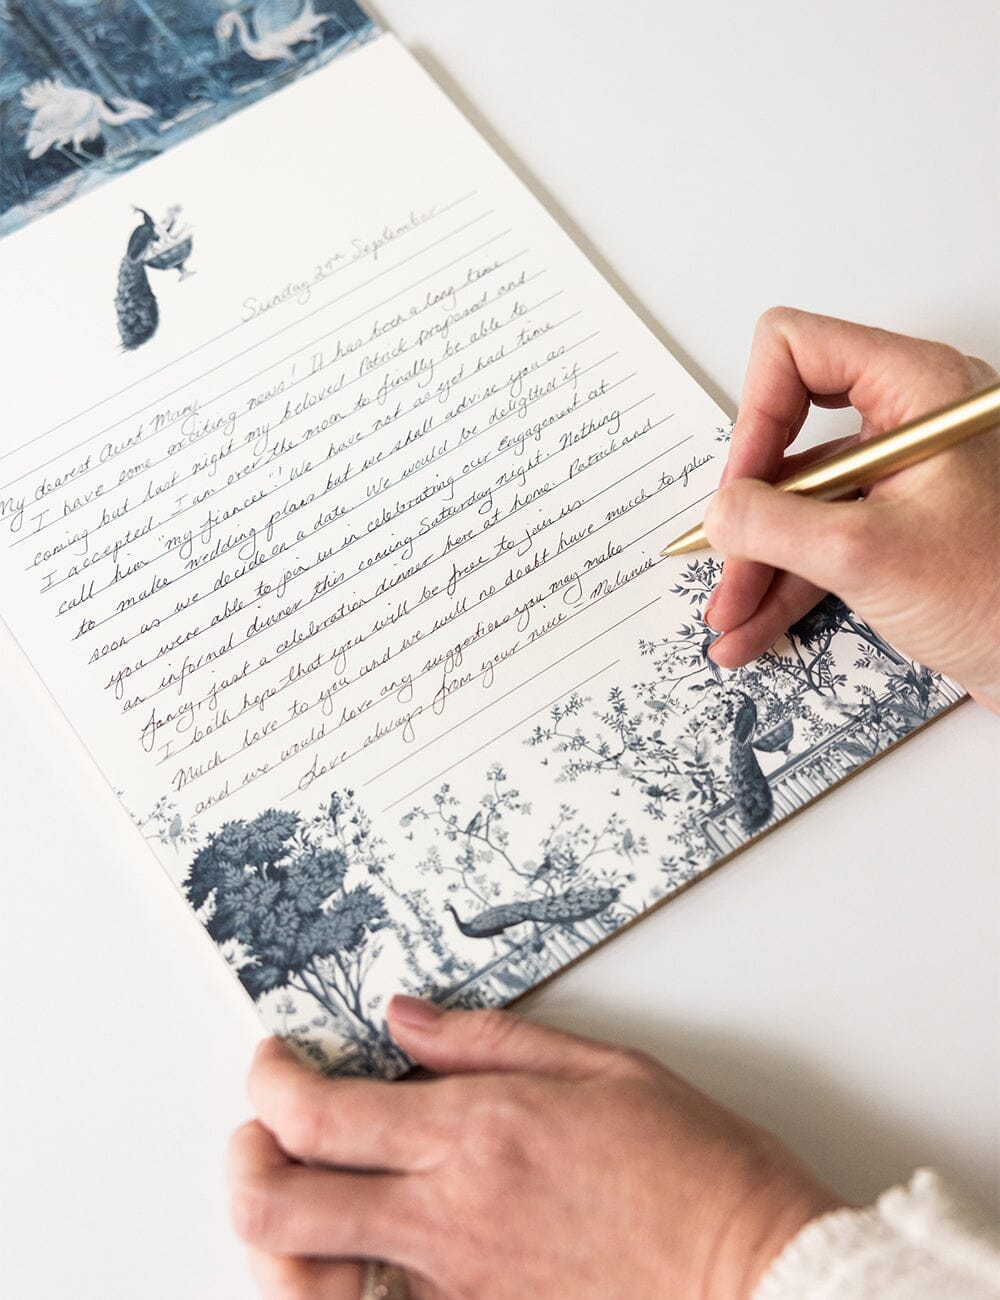 Sunday 27th September
My dearest Aunt Mary,
I have some exciting news! It has been a long time
coming but last night my beloved Patrick proposed and
I accepted. I am over the moon to finally be able to
call him "my fiancee"! We have not as yet had time
to make wedding plans but we shall advise you as
soon as we decide on a date. We would be delighted if
you were able to join us in celebrating our engagement at
an informal dinner this coming Saturday night. Nothing
fancy, just a celebration dinner here at home. Patrick and
I both hope that you will be free to join us.
Much love to you and we will no doubt have much to plan
and we would love any suggestions you may make
Love always from your niece - Melanie